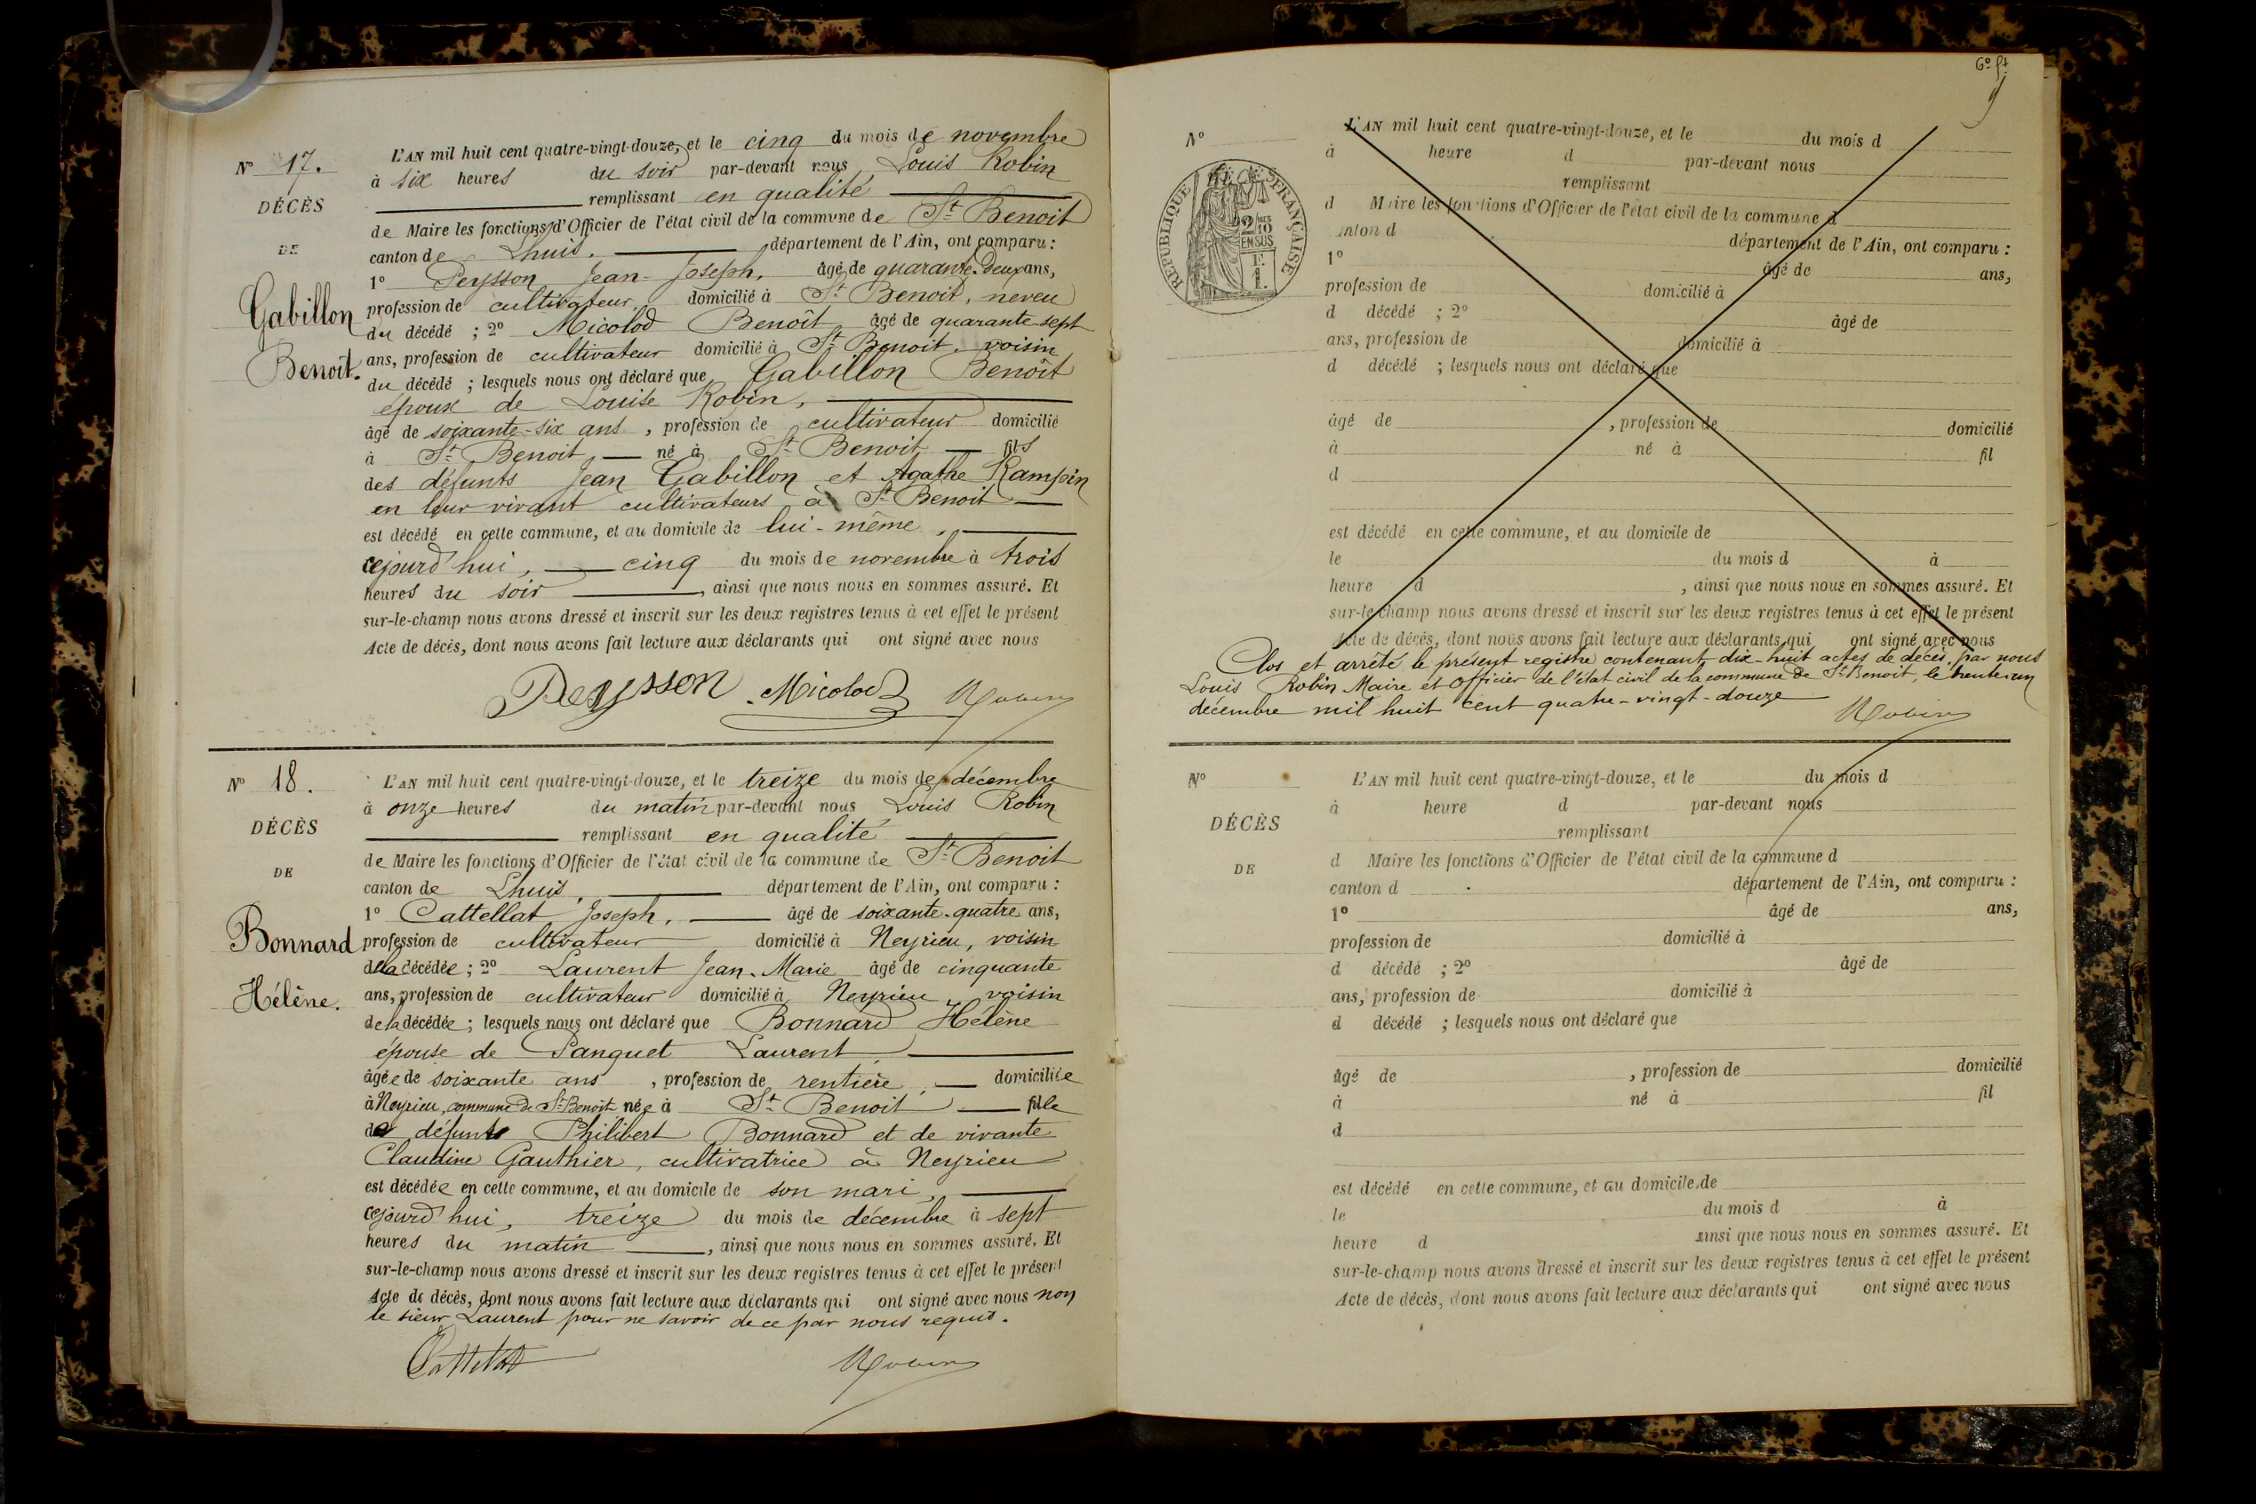 N° 17.
DÉCÈS
DE
Gabillon
Benoît.
L'AN mil huit cent quatre-vingt-douze, et le cinq du mois de novembre
à six heures du soir par-devant nous Louis Robin
remplissant en qualité
de Maire les fonctions d'Officier de l'état civil de la commune de St Benoit
canton de Lhuis, département de l'Ain, ont comparu :
1° Peysson Jean-Joseph, âgé de quarante-deux ans,
profession de cultivateur domicilié à St Benoit, neveu
du décédé ; 2° Micolod Benoît âgé de quarante sept
ans, profession de cultivateur domicilié à St Benoit, voisin
du décédé ; lesquels nous ont déclaré que Gabillon Benoît
époux de Louise Robin,
âgé de soixante-six ans, profession de cultivateur domicilié
à St Benoit né à St Benoit fils
des défunts Jean Gabillon et Agathe Rampin
en leur vivant cultivateurs à St Benoit
est décédé en cette commune, et au domicile de lui-même,
cejourd'hui, cinq du mois de novembre à trois
heures du soir, ainsi que nous nous en sommes assuré. Et
sur-le-champ nous avons dressé et inscrit sur les deux registres tenus à cet effet le présent
Acte de décès, dont nous avons fait lecture aux déclarants qui ont signé avec nous
Peysson Micolod Robin
N° 18.
DÉCÈS
DE
Bonnard
Hélène.
L'AN mil huit cent quatre-vingt-douze, et le treize du mois de décembre
à onze heures du matin par-devant nous Louis Robin
remplissant en qualité
de Maire les fonctions d'Officier de l'état civil de la commune de St Benoit
canton de Lhuis, département de l'Ain, ont comparu :
1° Cattellat Joseph, âgé de soixante-quatre ans,
profession de cultivateur domicilié à Neyrieu, voisin
de la décédée ; 2° Laurent Jean-Marie âgé de cinquante
ans, profession de cultivateur domicilié à Neyrieu, voisin
de la décédée ; lesquels nous ont déclaré que Bonnard Hélène
épouse de Panguet Laurent,
âgée de soixante ans, profession de rentière, domiciliée
à Neyrieu, commune de St Benoit née à St Benoit fille
de défunt Philibert Bonnard et de vivante
Claudine Gauthier, cultivatrice à Neyrieu
est décédée en cette commune, et au domicile de son mari,
cejourd'hui, treize du mois de décembre à sept
heures du matin, ainsi que nous nous en sommes assuré. Et
sur-le-champ nous avons dressé et inscrit sur les deux registres tenus à cet effet le présent
Acte de décès, dont nous avons fait lecture aux déclarants qui ont signé avec nous non
le sieur Laurent pour ne savoir de ce par nous requis.
Cattellat Robin
N°
RÉPUBLIQUE FRANÇAISE
2/10
EN SUS
1F.
L'AN mil huit cent quatre-vingt-douze, et le du mois d
à heure d par-devant nous
remplissant
d Maire les fonctions d'Officier de l'état civil de la commune d
anton d département de l'Ain, ont comparu :
1° âgé de ans,
profession de domicilié à
d décédé ; 2° âgé de
ans, profession de domicilié à
d décédé ; lesquels nous ont déclaré que
âgé de , profession de domicilié
à né à fil
d
est décédé en cette commune, et au domicile de
le du mois d à
heure d , ainsi que nous nous en sommes assuré. Et
sur-le-champ nous avons dressé et inscrit sur les deux registres tenus à cet effet le présent
Acte de décès, dont nous avons fait lecture aux déclarants qui ont signé avec nous
Clos et arrêté le présent registre contenant dix-huit actes de décès, par nous
Louis Robin Maire et Officier de l'état civil de la commune de St Benoit, le trente-un
décembre mil huit cent quatre-vingt-douze
Robin
N°
DÉCÈS
DE
L'AN mil huit cent quatre-vingt-douze, et le du mois d
à heure d par-devant nous
remplissant
d Maire les fonctions d'Officier de l'état civil de la commune d
canton d département de l'Ain, ont comparu :
1° âgé de ans,
profession de domicilié à
d décédé ; 2° âgé de
ans, profession de domicilié à
d décédé ; lesquels nous ont déclaré que
âgé de , profession de domicilié
à né à fil
d
est décédé en cette commune, et au domicile de
le du mois d à
heure d ainsi que nous nous en sommes assuré. Et
sur-le-champ nous avons dressé et inscrit sur les deux registres tenus à cet effet le présent
Acte de décès, dont nous avons fait lecture aux déclarants qui ont signé avec nous